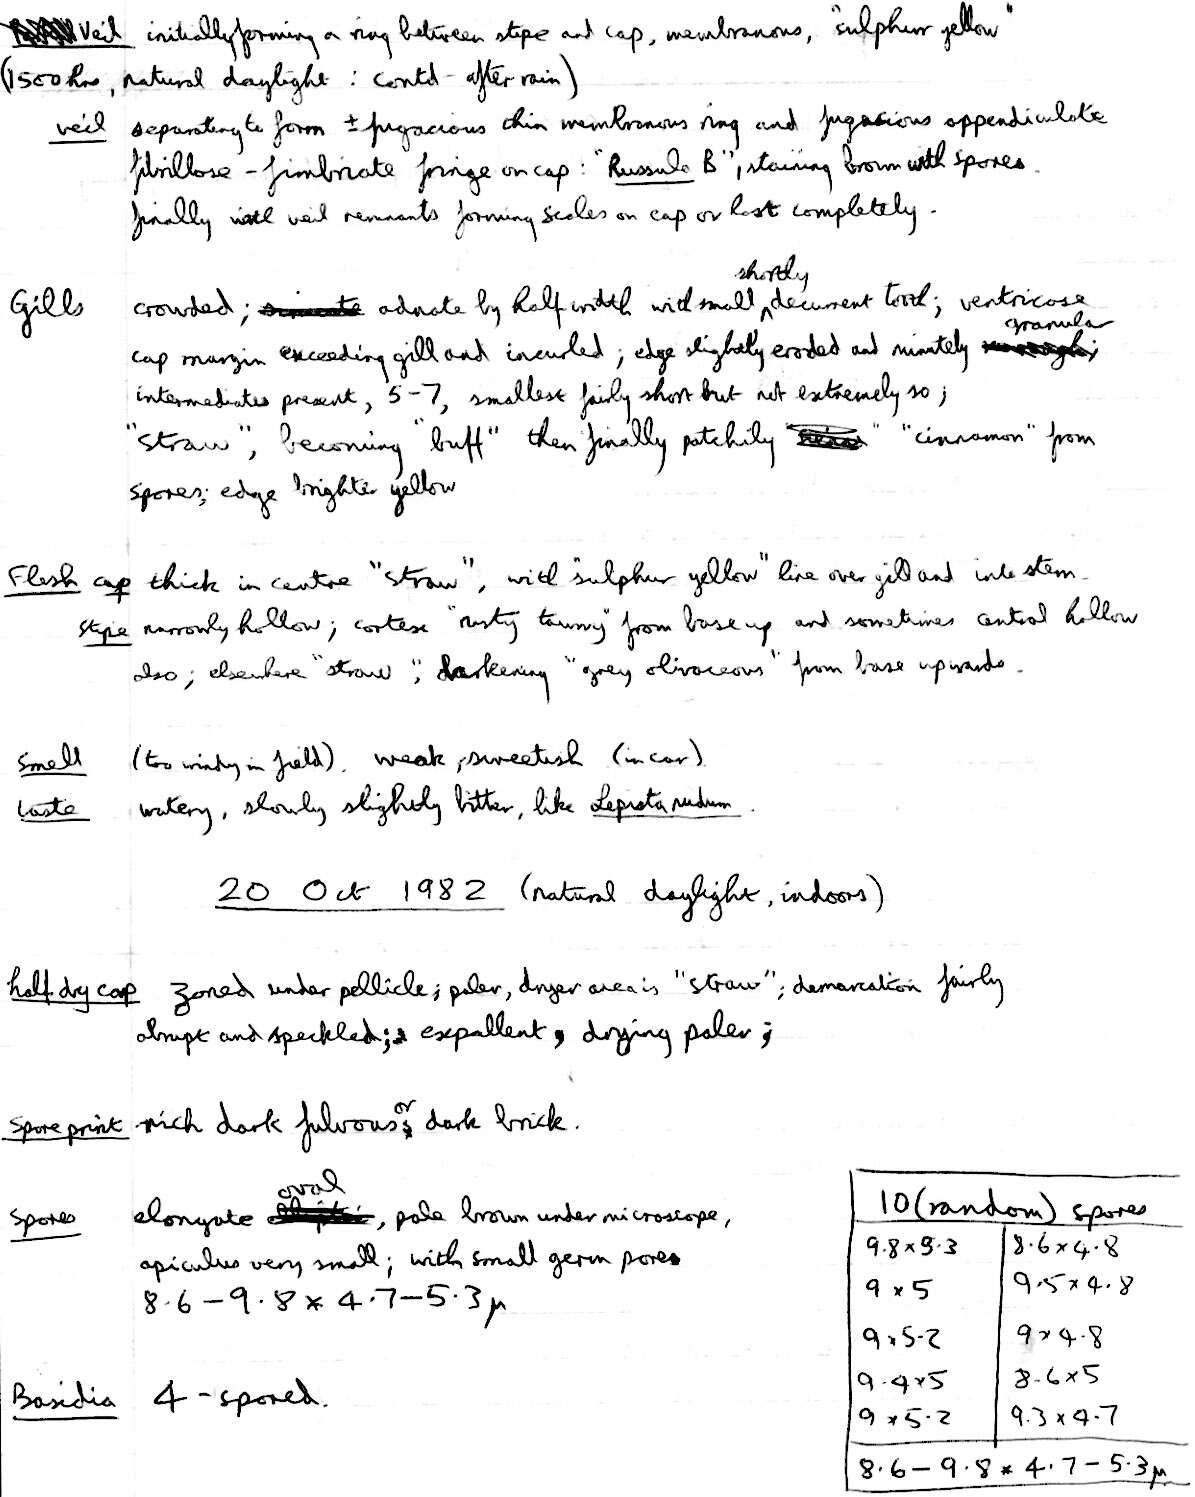 Veil initially forming a ring between stipe and cap, membranous, "sulphur yellow"
(1500 hrs, natural daylight : contd - after rain)
veil separating to form ± fugacious thin membranous ring and fugacious appendiculate
fibrillose - fimbriate fringe on cap : "Russula B", staining brown with spores.
finally with veil remnants forming scales on cap or lost completely.
shortly
Gills crowded; adnate by half width with small decurrent tooth; ventricose
granular
cap margin exceeding gill and incurled; edge slightly eroded and minutely
intermediates present, 5-7, smallest fairly short but not extremely so;
"straw", becoming "buff" then finally patchily "cinnamon" from
spores; edge brighter yellow
Flesh cap thick in centre "straw", with "sulphur yellow" line over gill and into stem.
stipe narrowly hollow; cortex "rusty tawny" from base up and sometimes central hollow
also; elsewhere "straw"; darkening "grey olivaceous" from base upwards.
Smell (too windy in field). weak, sweetish (in car).
taste watery, slowly slightly bitter, like Lepista nudum.
20 Oct 1982 (natural daylight, indoors)
half dry cap zoned under pellicle; paler, dryer area is "straw"; demarcation fairly
abrupt and speckled; expallent, drying paler;
or
Spore print rich dark fulvous dark brick.
oval
Spores elongate, pale brown under microscope,
apiculus very small; with small germ pores
8.6 - 9.8 x 4.7 - 5.3 µ
Basidia 4 - spored.
10 (random) spores
9.8 x 5.3 8.6 x 4.8
9 x 5 9.5 x 4.8
9 x 5.2 9 x 4.8
9.4 x 5 8.6 x 5
9 x 5.2 9.3 x 4.7
8.6 - 9.8 x 4.7 - 5.3 µ